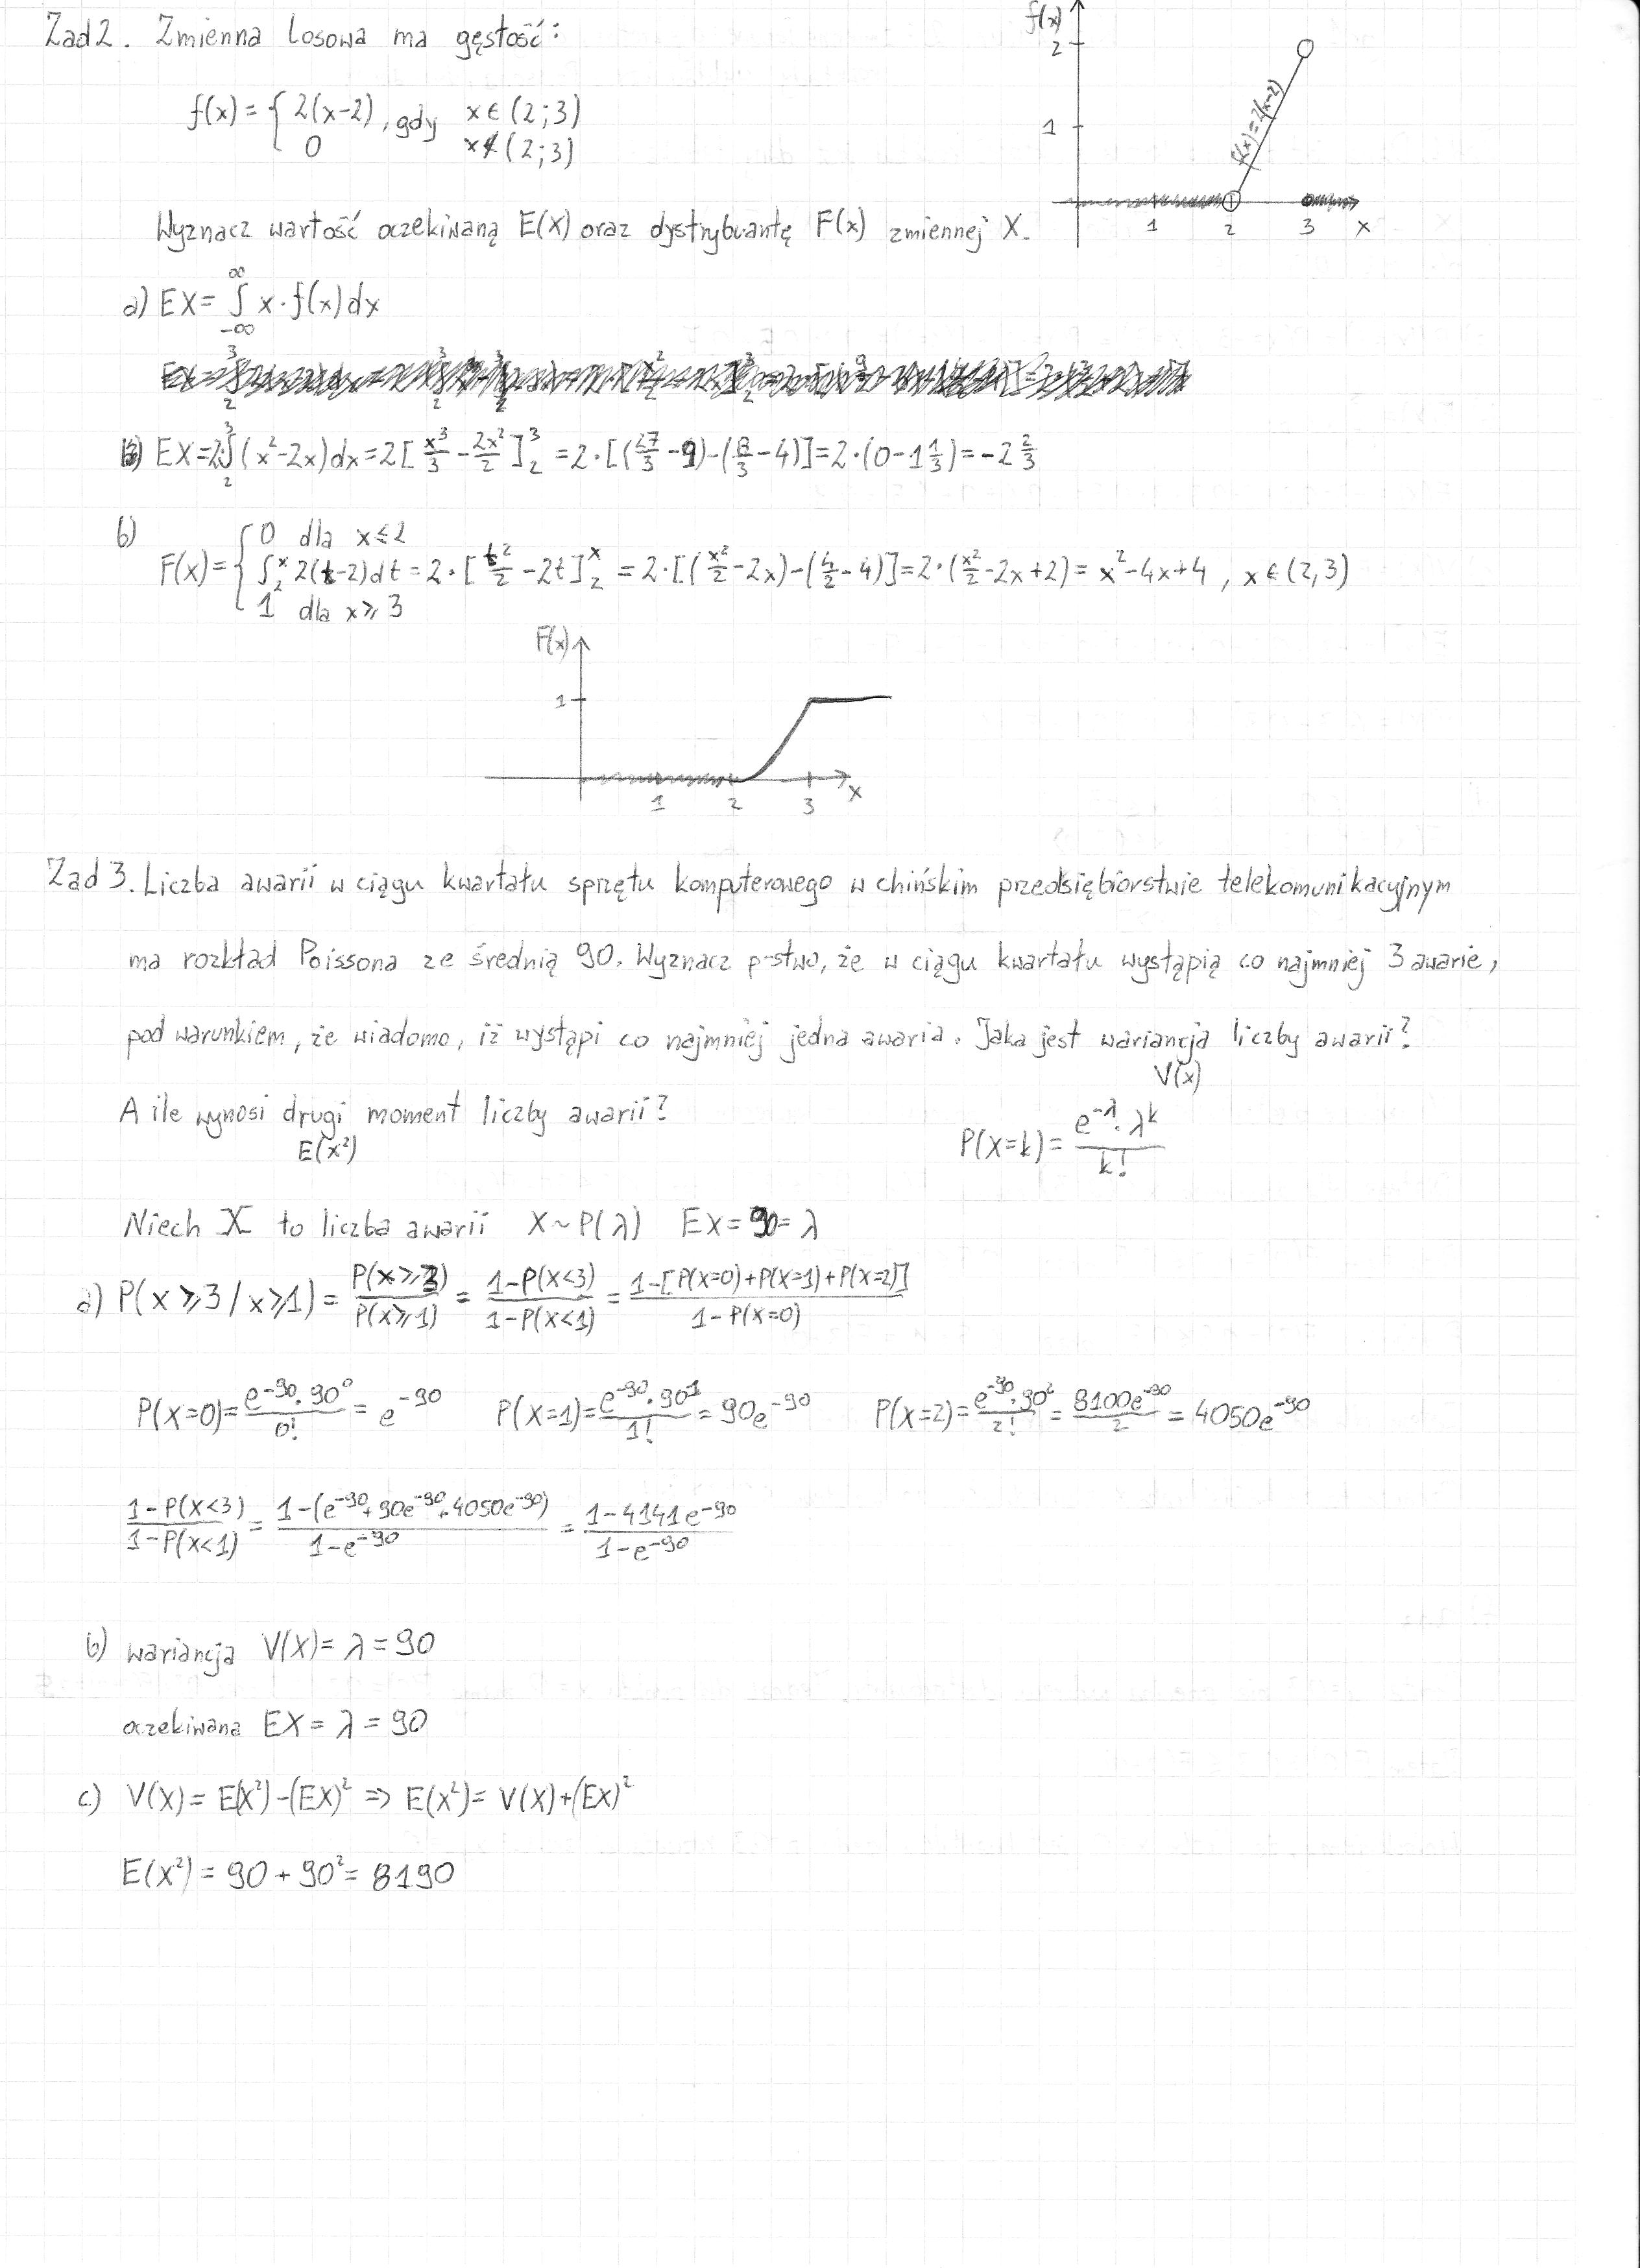 Zad 2. Zmienna losowa ma gęstość:
f(x) = { 2(x-2) , gdy x ∈ (2; 3)
0 x ∉ (2; 3)
f(x)
2
1
f(x)=2(x-2)
1 2 3 x
Wyznacz wartość oczekiwaną E(X) oraz dystrybuantę F(x) zmiennej X.
a) EX = ∫_{-∞}^{∞} x · f(x) dx
EX = 2∫_2^3 (x² - 2x) dx = 2 [x³/3 - 2x²/2]_2^3 = 2 · [(27/3 - 9) - (8/3 - 4)] = 2 · (0 - 1 1/3) = -2 2/3
b)
F(x) = { 0 dla x ≤ 2
∫_2^x 2(t-2)dt = 2 · [t²/2 - 2t]_2^x = 2 · [(x²/2 - 2x) - (4/2 - 4)] = 2 · (x²/2 - 2x + 2) = x² - 4x + 4 , x ∈ (2, 3)
1 dla x ≥ 3
F(x)
1
1 2 3 x
Zad 3. Liczba awarii w ciągu kwartału sprzętu komputerowego w chińskim przedsiębiorstwie telekomunikacyjnym
ma rozkład Poissona ze średnią 90. Wyznacz p-stwo, że w ciągu kwartału wystąpią co najmniej 3 awarie,
pod warunkiem, że wiadomo, iż wystąpi co najmniej jedna awaria. Jaka jest wariancja liczby awarii?
V(x)
A ile wynosi drugi moment liczby awarii?
E(x²)
P(X=k) = e^{-λ} · λ^k / k!
Niech X to liczba awarii X ~ P(λ) EX = 90 = λ
a) P(x ≥ 3 / x ≥ 1) = P(x ≥ 3) / P(x ≥ 1) = 1-P(X<3) / 1-P(X<1) = 1-[P(X=0)+P(X=1)+P(X=2)] / 1-P(X=0)
P(X=0) = e^{-90} · 90^0 / 0! = e^{-90} P(X=1) = e^{-90} · 90^1 / 1! = 90e^{-90} P(X=2) = e^{-90} · 90² / 2! = 8100e^{-90} / 2 = 4050e^{-90}
1-P(X<3) / 1-P(X<1) = 1-(e^{-90}+90e^{-90}+4050e^{-90}) / 1-e^{-90} = 1-4141e^{-90} / 1-e^{-90}
b) wariancja V(X) = λ = 90
oczekiwana EX = λ = 90
c) V(X) = E(X²) - (EX)² => E(X²) = V(X) + (EX)²
E(X²) = 90 + 90² = 8190